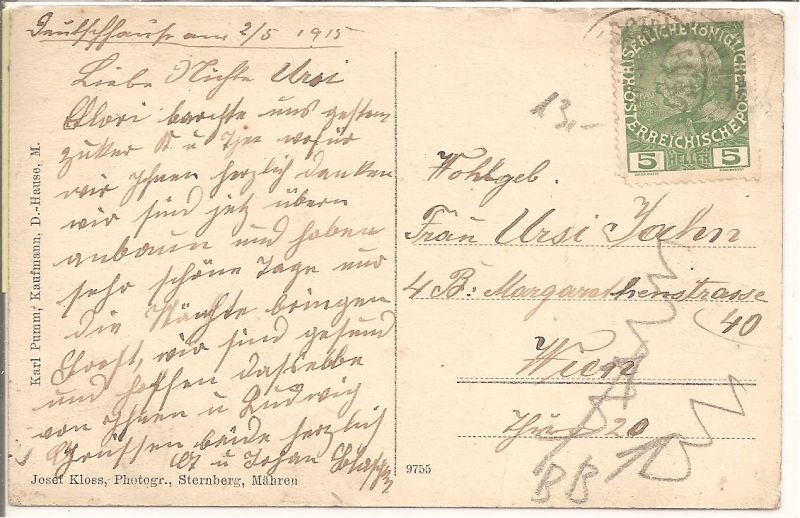 Deutschhause am 2/5 1915
Liebe Nichte Ursi
brachte uns gestern
Zuker u wofür
wir Ihnen herzlich danken
wir sind jetz übern
anbaun und haben
sehr schöne Tage nur
die Nächte bringen
Frost, wir sind gesund
und hoffen dasselbe
von Ihnen u Ludwig
Grüssen beide herzlich
u Johan
Karl Pumm, Kaufmann, D.-Hause, M.
Josef Kloss, Photogr., Sternberg, Mähren
9755
KAISERLICHE KÖNIGLICHE
ÖSTERREICHISCHE POST
5 HELLER 5
13,-
Wohlgeb.
Frau Ursi Jahn
4 B: Margarethenstrasse
40
Wien
Thür 20
BB